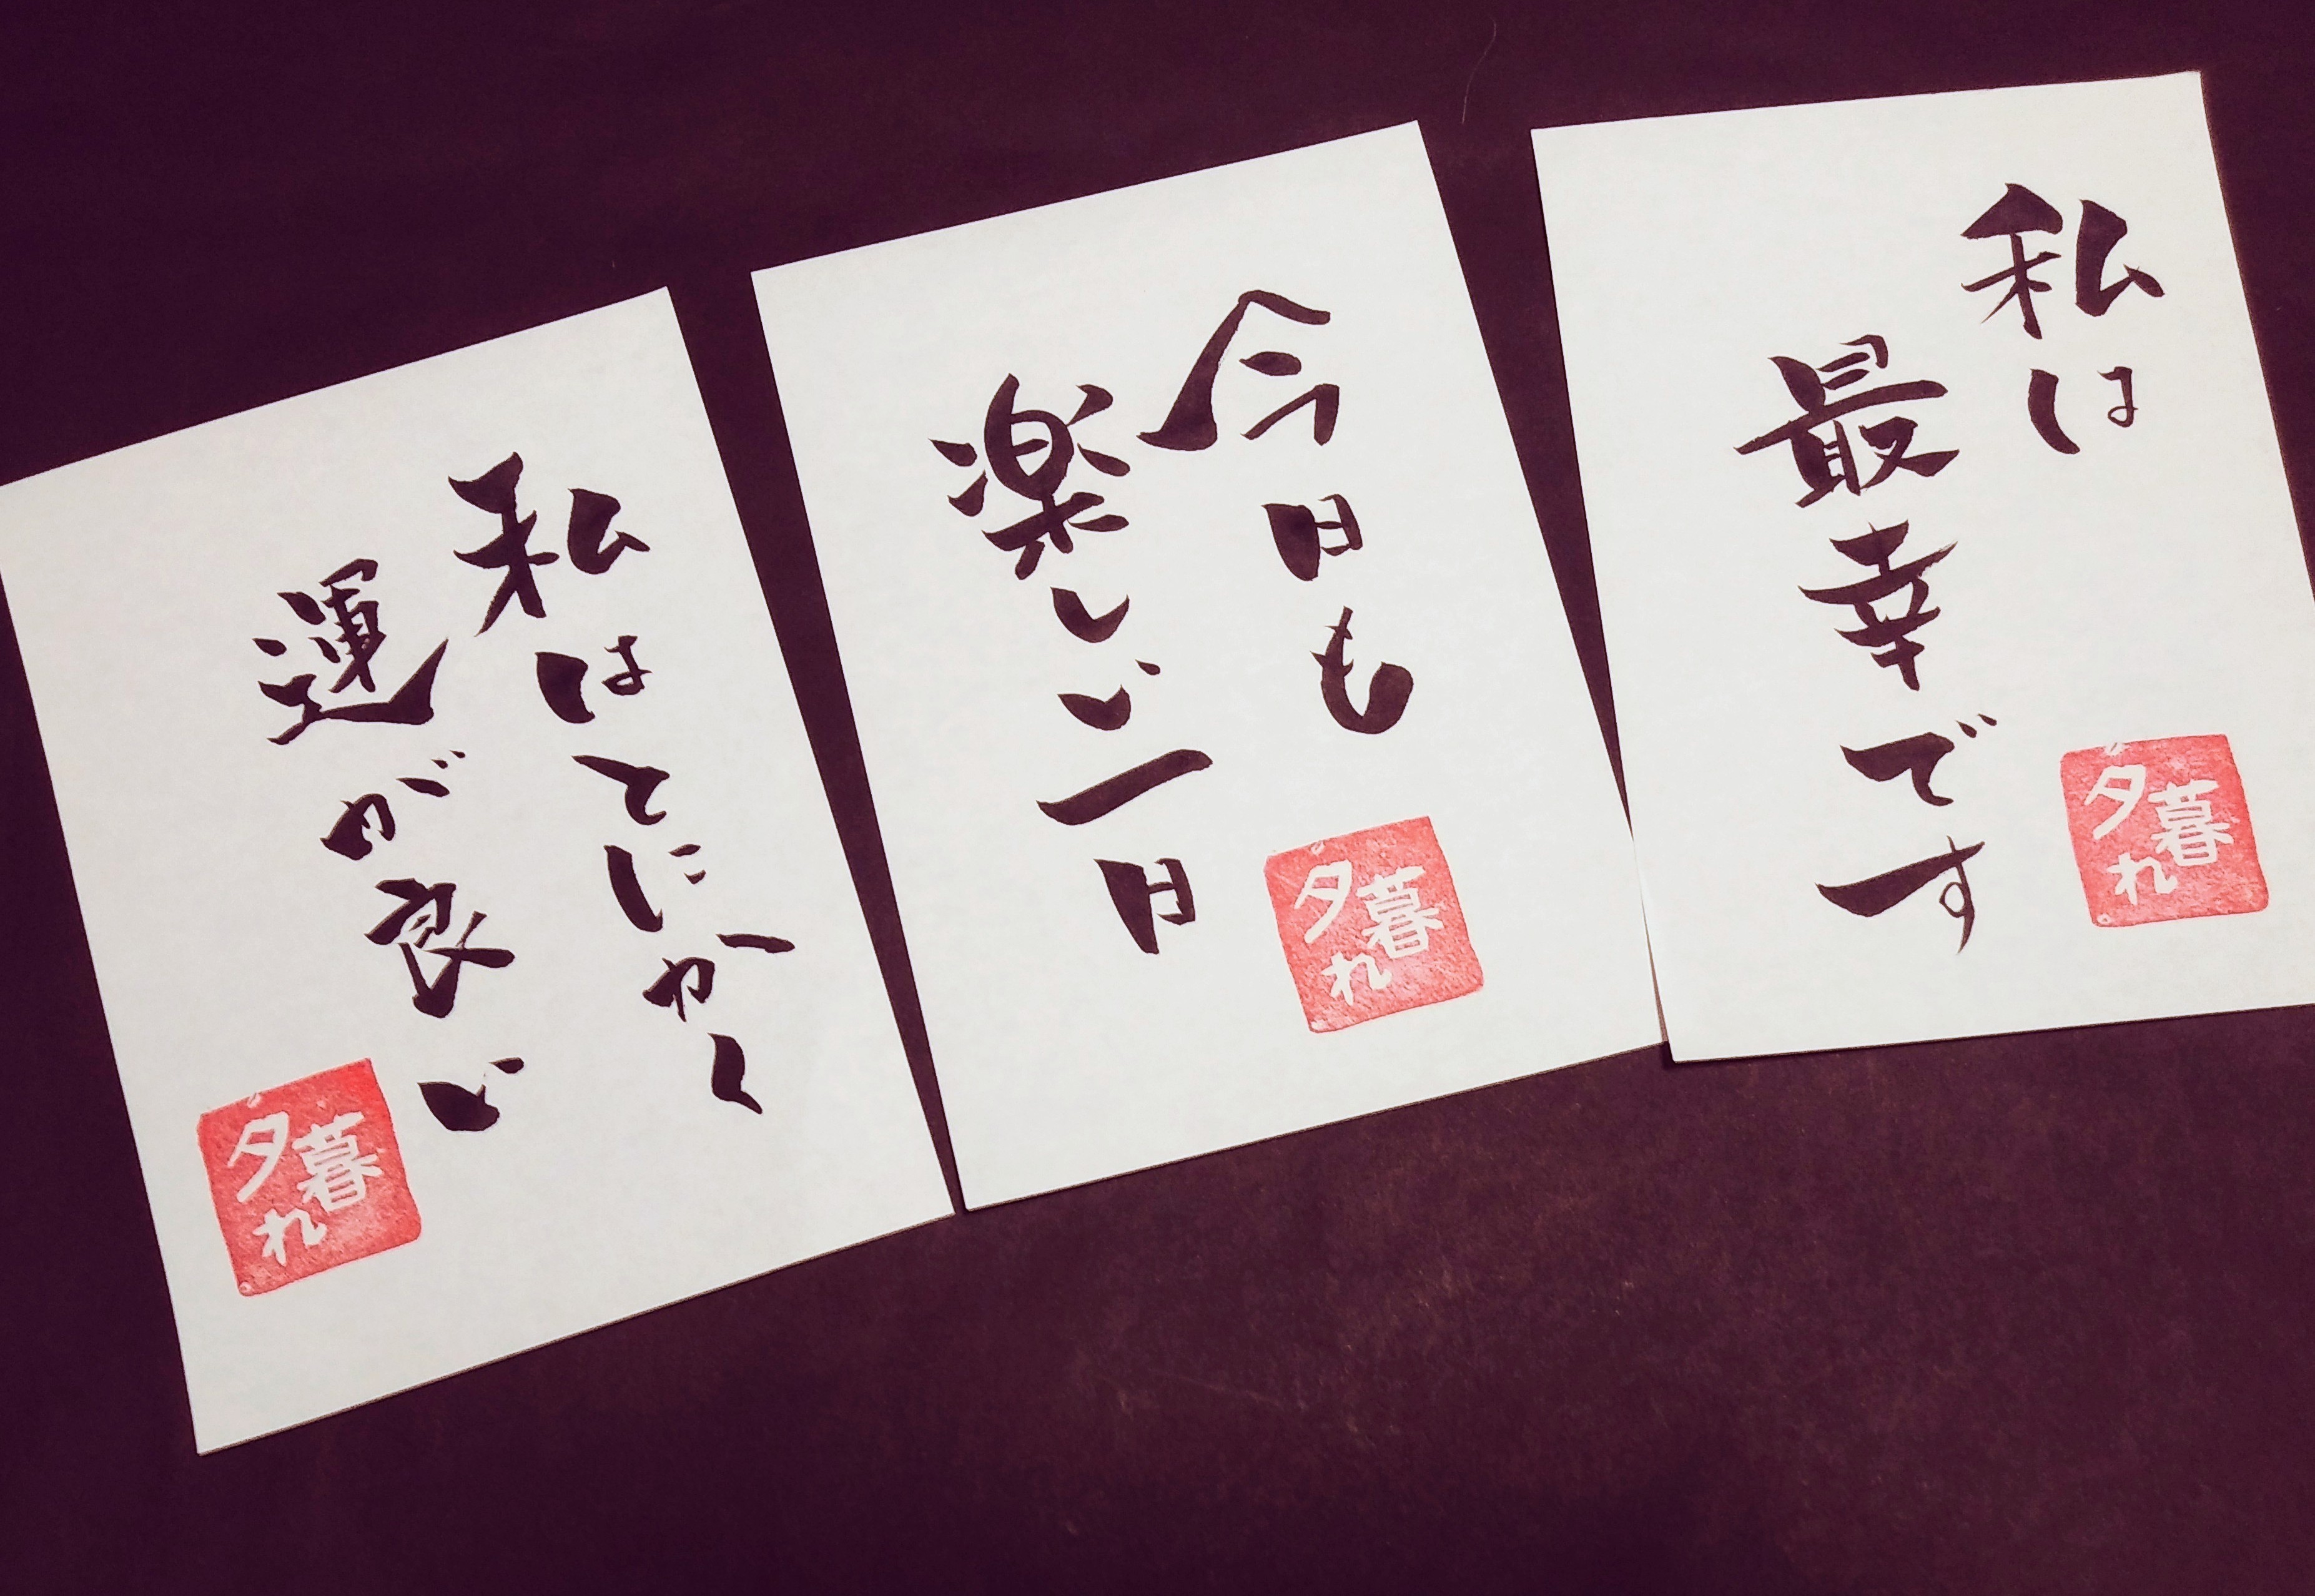 私は
最幸です
夕暮れ
今日も
楽しい一日
夕暮れ
私はとにかく
運が良い
夕暮れ